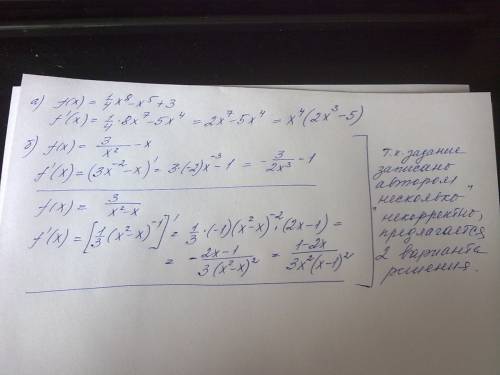 а) f(x) = 1/4 x⁸ - x⁵ + 3
f'(x) = 1/4 · 8x⁷ - 5x⁴ = 2x⁷ - 5x⁴ = x⁴(2x³ - 5)
б) f(x) = 3/x² - x
f'(x) = (3x⁻² - x)' = 3·(-2)x⁻³ - 1 = - 3/2x³ - 1
f(x) = 3/x²-x
f'(x) = [1/3 (x²-x)⁻¹]' = 1/3 · (-1)(x²-x)⁻² · (2x-1) =
= - 2x-1/3(x²-x)² = 1-2x/3x²(x-1)²
т.к. задание
записано
автором
несколько
"некорректно",
предлагается
2 варианта
решения.